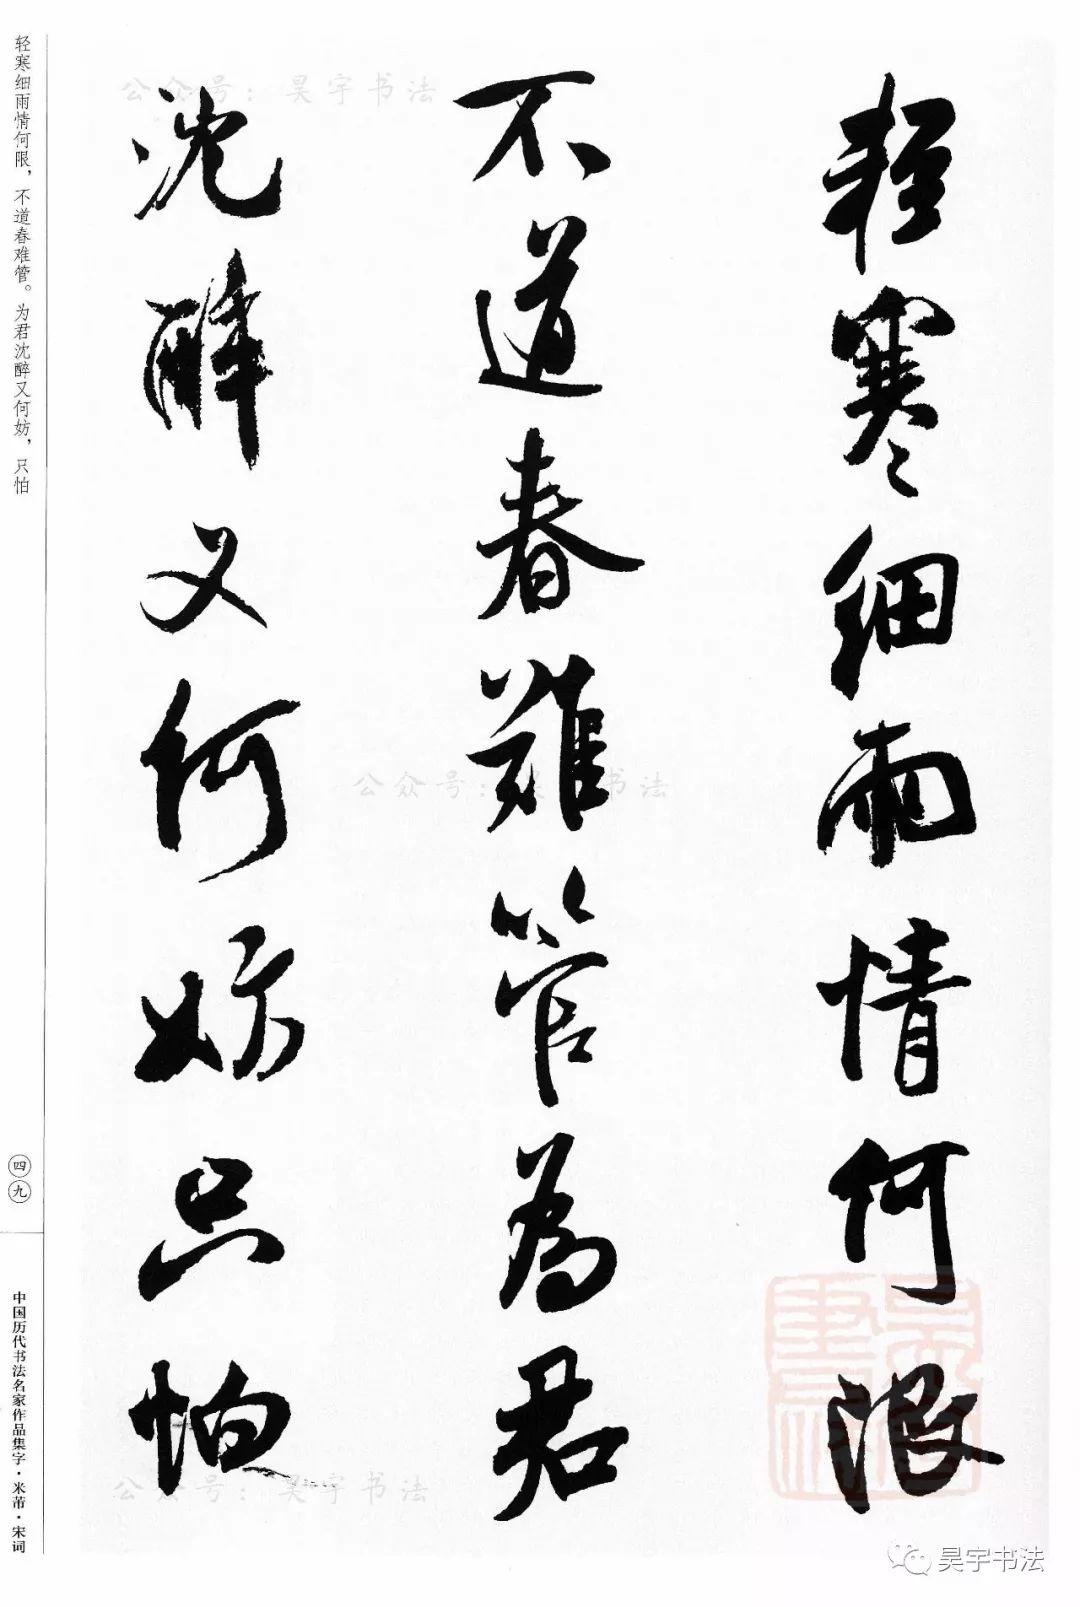 輕寒細雨情何限
不道春難管為君
沈醉又何妨只怕
轻寒细雨情何限，不道春难管。为君沈醉又何妨，只怕
四九
中国历代书法名家作品集字·米芾·宋词
公众号：昊宇书法
公众号：昊宇书法
公众号：昊宇书法
昊宇书法